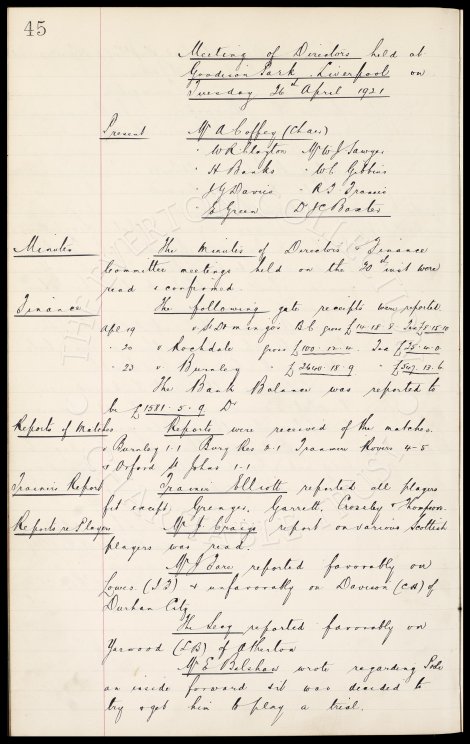 45
Meeting of Directors held at
Goodison Park Liverpool on
Tuesday 26th April 1921
Present Mr A Coffey (Chair)
" W R Clayton Mr W J Sawyer
" H Banks " W C Gibbins
" J G Davies " R T Francis
" E Green Dr J C Baxter
Minutes The Minutes of Directors & Finance
Committee meetings held on the 20th inst were
read & confirmed.
Finance The following gate receipts were reported.
Apl 19 v St Domingo's B.C gross £14.18.8 Tax £5.15.10
" 20 v Rochdale gross £100.12.4 Tax £25.4.0
" 23 v Burnley " £2640.18.9 " £547.13.6
The Bank Balance was reported to
be £1581.5.9 Dr
Reports of Matches Reports were received of the matches.
v Burnley 1-1 Bury Res 0-1 Tranmere Rovers 4-5
& Oxford St Johns 1-1
Trainers Report Trainer Elliott reported all players
fit except Grenyer, Garrett, Crossley & Thompson.
Reports re Players Mr J Craigs report on various Scottish
players was read.
Mr J reported favorably on
Lowes (I.F) & unfavorably on Davison (C.H) of
Durham City
The Secy reported favorably on
Yarwood (L.B) of Atherton
Mr E Belshaw wrote regarding
an inside forward & it was decided to
try & get him to play a trial.